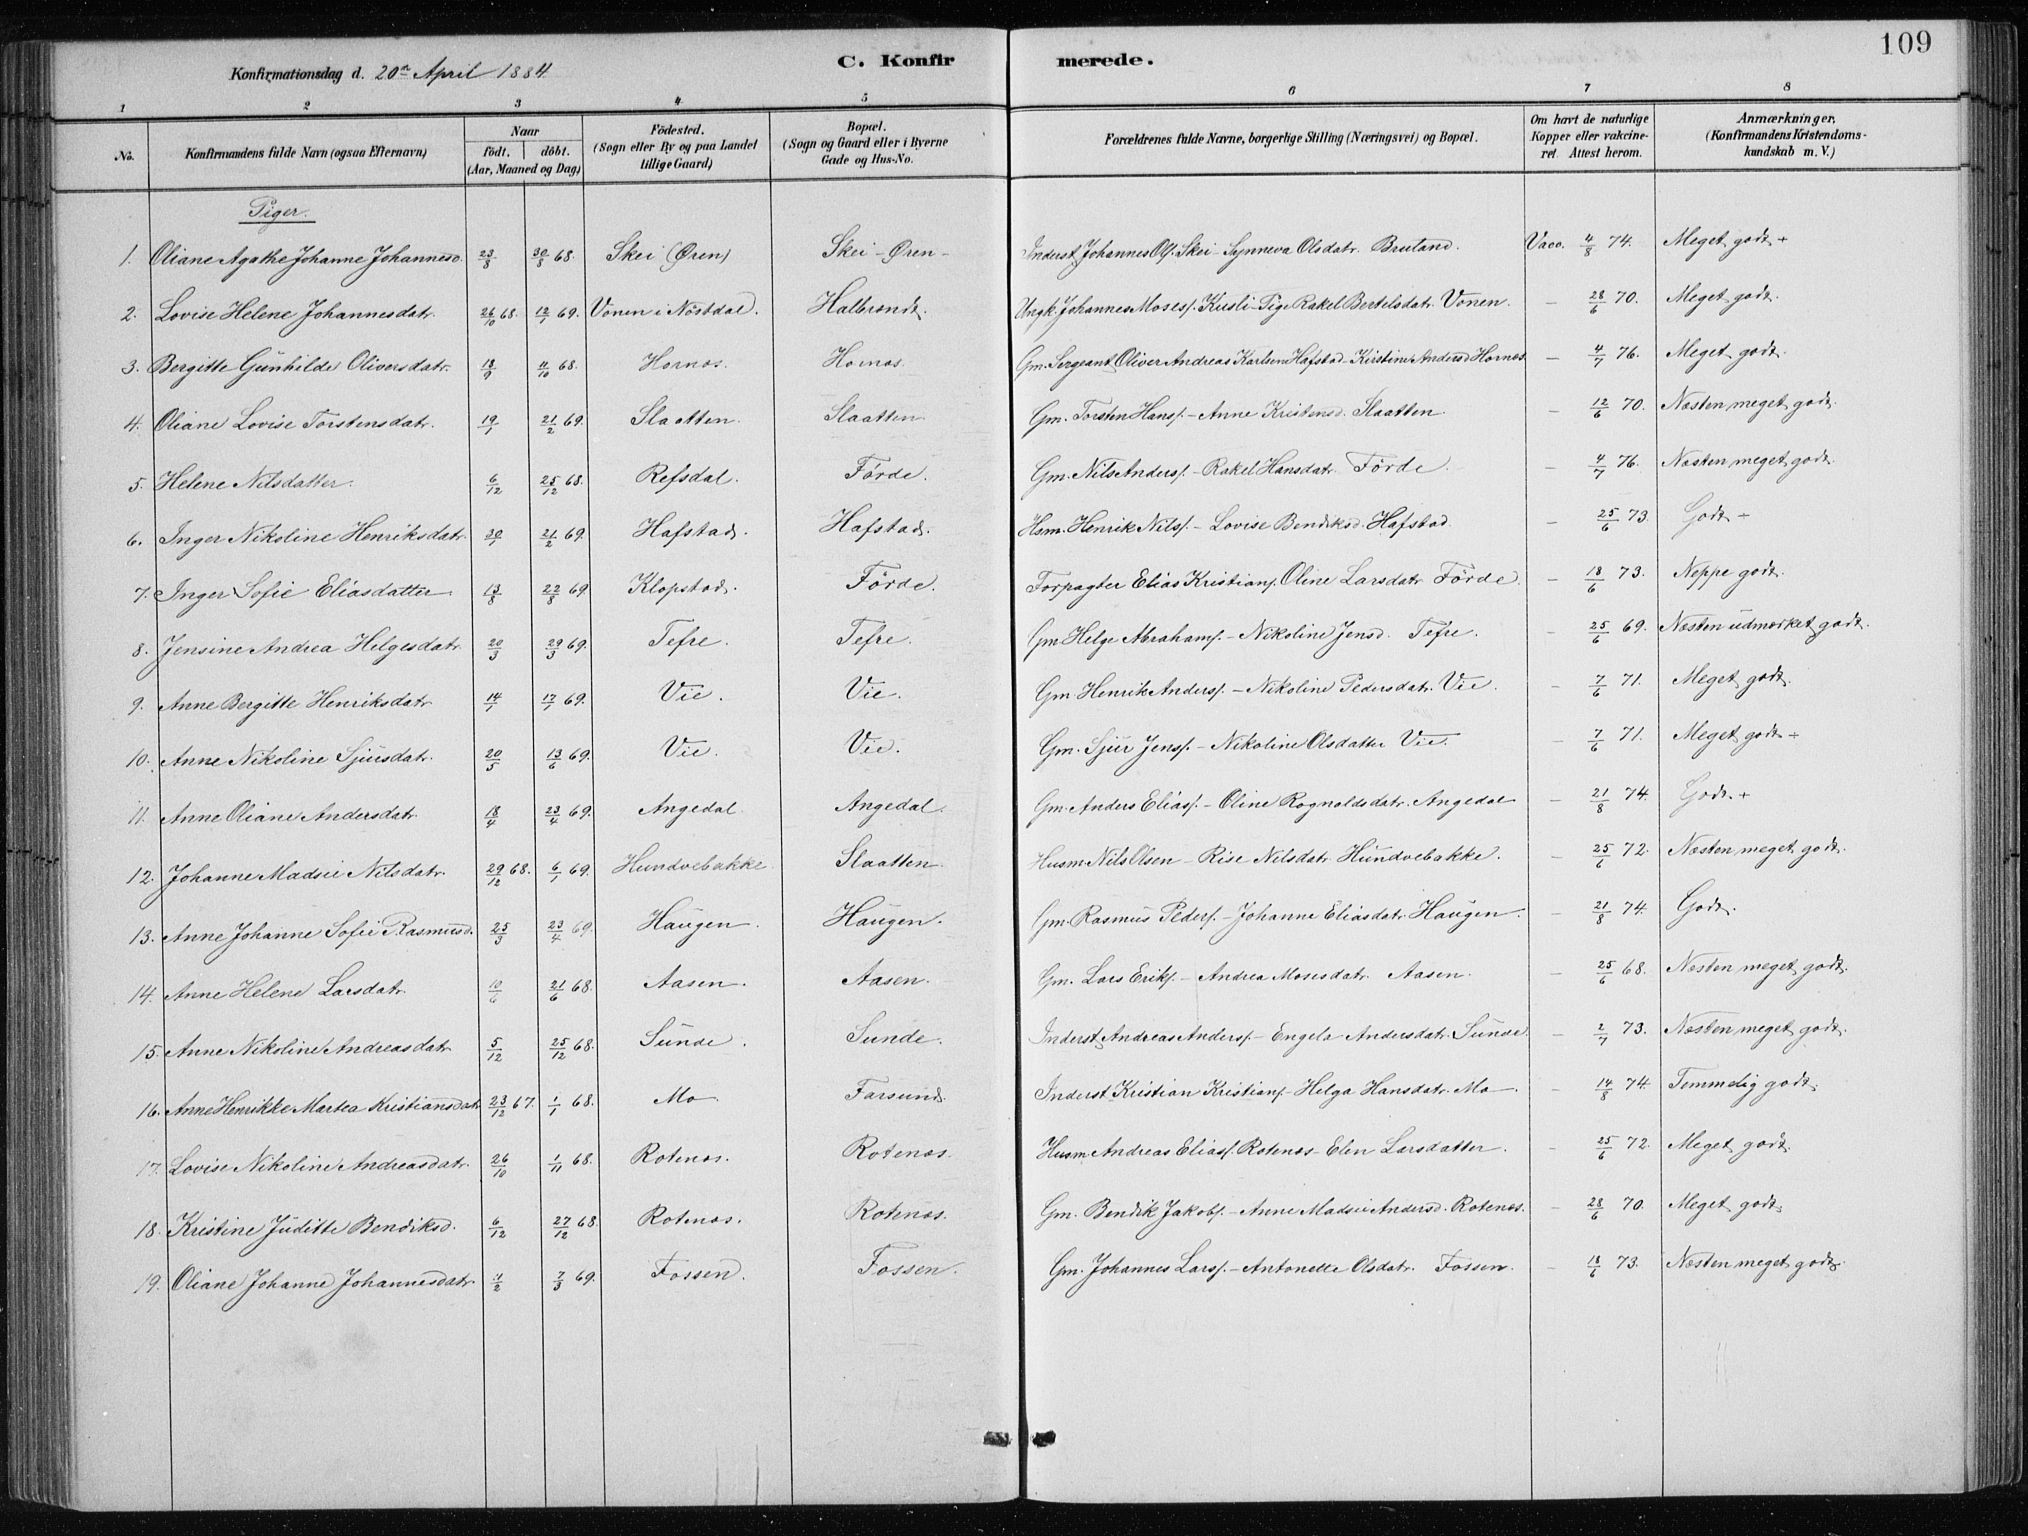 109
Konfirmationsdag d. 20de April 1884. C. Konfirmerede.
1 2 3 4 5 6 7 8
No. Konfirmandens fulde Navn (ogsaa Efternavn) Naar födt. döbt. (Aar, Maaned og Dag) Födested. (Sogn eller By og paa Landet tillige Gaard) Bopæl. (Sogn og Gaard eller i Byerne Gade og Hus-No. Forældrenes fulde Navne, borgerlige Stilling (Næringsvei) og Bopæl. Om havt de naturlige Kopper eller vakcineret Attest herom. Anmærkninger, (Konfirmandens Kristendomskundskab m. V.)
Piger.
1. Oliane Agathe Johanne Johannesd. 23/8 30/8 68. Skei (Øren) Skei - Øren - Inderst Johannes Ols. Skei - Synneva Olsdatr. Bruland. Vacc. 4/8 74. Meget godt +
2. Lovise Helene Johannesdatr. 26/10 68. 12/1 69. Vonen i Nöstdal. Halbrendt. Ungk. Johannes Moses. Kusli - Pige Rakel Bertelsdatr. Vonen. - 28/6 70. Meget godt.
3. Bergitte Gunhilde Oliversdatr. 18/9 11/10 68. Hornes. Hornes. Gm. Sergeant Oliver Andreas Karlsen Hafstad - Kirstine Andersd Hornes - 4/7 76. Meget godt.
4. Oliane Lovise Torstensdatr. 19/1 21/2 69. Slaatten. Slaatten Gm. Torsten Hans. - Anne Kristensd. Slaatten. - 12/6 70. Næsten meget godt.
5. Helene Nilsdatter. 6/12 25/12 68. Refsdal. Förde. Gm. Nils Anders. - Rakel Hansdatr. Förde. - 4/7 76. Næsten meget godt.
6. Inger Nikoline Henriksdatr. 30/1 21/2 69. Hafstad. Hafstad. Hsm. Henrik Nils. - Lovise Bendiksd. Hafstad - 25/6 73. Godt -
7. Inger Sofie Eliasdatter 13/8 22/8 69. Klopstad. Förde. Forpagter Elias Kristians. Oline Larsdatr. Förde. - 18/6 73. Neppe godt.
8. Jensine Andrea Helgesdatr. 20/3 29/3 69. Tefre. Tefre. Gm Helge Abrahams. - Nikoline Jensd. Tefre. - 25/6 69. Næsten udmærket godt.
9. Anne Bergitte Henriksdatr 14/1 17/1 69. Vie. Vie. Gm. Henrik Anders. - Nikoline Pedersdatr. Vie. - 7/6 71. Meget godt.
10. Anne Nikoline Sjursdatr. 20/5 13/6 69. Vie. Vie. Gm. Sjur Jens. - Nikoline Olsdatter Vie. - 7/6 71. Meget godt +
11. Anne Oliane Andersdatr. 18/4 23/4 69. Angedal. Angedal. Gm. Anders Elias. - Oline Rognaldsdatr. Angedal - 21/8 74. Godt. +
12. Johanne Madsie Nilsdatr. 29/12 68. 6/1 69. Hundvebakke. Slaatten Husm Nils Olsen - Rise Nilsdatr. Hundvebakke. - 25/6 72. Næsten meget godt.
13. Anne Johanne Sofie Rasmusd. 25/3 23/4 69. Haugen. Haugen. Gm. Rasmus Peders. - Johanne Eliasdatr. Haugen. - 21/8 74. Godt.
14. Anne Helene Larsdatr. 10/6 21/6 68. Aasen. Aasen. Gm. Lars Eriks. - Andrea Mosesdatr. Aasen. - 25/6 68. Næsten meget godt.
15. Anne Nikoline Andreasdatr 5/12 25/12 68. Sunde. Sunde. Inderst Andreas Anders. - Engela Andersdatr. Sunde. - 2/7 73. Næsten meget godt.
16. Anne Henrikke Martea Kristiansdatr 23/12 67. 1/1 68. Mo. Farsund. Inderst Kristian Kristians. - Helga Hansdatr. Mo - - 14/8 74. Temmelig godt.
17. Lovise Nikoline Andreasdatr. 26/10 1/11 68. Rotenes. Rotenes. Husm Andreas Elias. Rotenes - Elen Larsdatter. - 25/6 72. Meget godt.
18. Kristine Juditte Bendiksd. 6/12 27/12 68. Rotenes. Rotenes. Gm. Bendik Jakobs. - Anne Madsie Andersd. Rotenes. - 28/6 70. Meget godt.
19. Oliane Johanne Johannesdatr. 11/2 7/3 69. Fossen. Fossen. Gm. Johannes Lars. - Antonette Olsdatr. Fossen. - 18/6 73. Næsten meget godt.